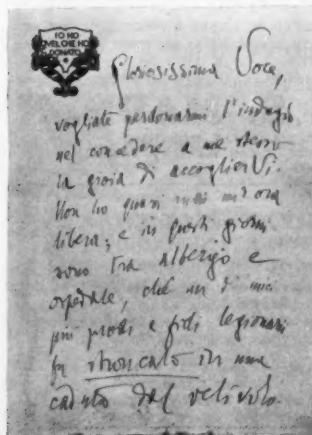 IO HO
QUEL CHE HO
DONATO
Gloriosissima Voce,
vogliate perdonarmi l'indugio
nel concedere a me stesso
la gioia di accoglierVi.
Non ho quasi mai un'ora
libera; e in questi giorni
sono tra albergo e
ospedale, chè un di miei
più prodi e fidi legionari
fu stroncato in una
caduta dal velivolo.